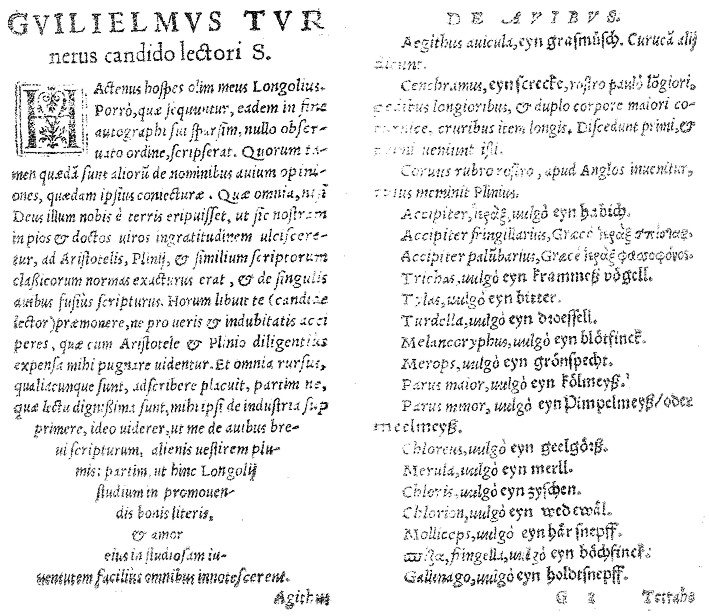 GVILIELMVS TVR
nerus candido lectori S.
HActenus hospes olim meus Longolius.
Porrò, quæ sequuntur, eadem in fine
autographi sui sparsim, nullo obser-
uato ordine, scripserat. Quorum ta-
men quædā sunt aliorū de nominibus auium opini-
ones, quædam ipsius coniecturæ. Quæ omnia, nisi
Deus illum nobis è terris eripuisset, ut sic nostram
in pios & doctos uiros ingratitudinem ulciscere-
tur, ad Aristotelis, Plinij, & similium scriptorum
classicorum normas exacturus erat, & de singulis
auibus fusius scripturus. Horum libuit te (candide
lector) præmonere, ne pro ueris & indubitatis acci
peres, quæ cum Aristotele & Plinio diligentius
expensa mihi pugnare uidentur. Et omnia rursus,
qualiacunque sunt, adscribere placuit, partim ne,
quæ lectu dignissima sunt, mihi ipsi de industria sup
primere, ideo uiderer, ut me de auibus bre-
ui scripturum, alienis uestirem plu-
mis: partim, ut hinc Longolij
studium in promouen-
dis bonis literis,
& amor
eius in studiosam iu-
uentutem facilius omnibus innotescerent.
Agithus
DE AVIBVS.
Aegithus auicula, eyn grasmüsch. Curucā alij
dicunt.
Cenchramus, eyn screcke, rostro paulò lōgiori,
pedibus longioribus, & duplo corpore maiori co-
turnice, cruribus item longis. Discedunt primi, &
primi ueniunt isti.
Coruus rubro rostro, apud Anglos inuenitur,
cuius meminit Plinius.
Accipiter, ἱέραξ, uulgò eyn habich.
Accipiter fringillarius, Græcè ἱέραξ σπιζίας.
Accipiter palūbarius, Græcè ἱέραξ φασσοφόνος.
Trichas, uulgò eyn krammeß vögell.
Tylas, uulgò eyn bitter.
Turdella, uulgò eyn droesseli.
Melancoryphus, uulgò eyn blötfinck.
Merops, uulgò eyn grönspecht.
Parus maior, uulgò eyn kölmeyß.
Parus minor, uulgò eyn Pimpelmeyß/oder
meelmeyß.
Chloreus, uulgò eyn geelgörß.
Merula, uulgò eyn merll.
Chloris, uulgò eyn zyschen.
Chlorion, uulgò eyn wedewäl.
Molliceps, uulgò eyn här snepff.
σπίζα, fringella, uulgò eyn böchfinck.
Gallinago, uulgò eyn holdtsnepff.
G 2 Tetrabo